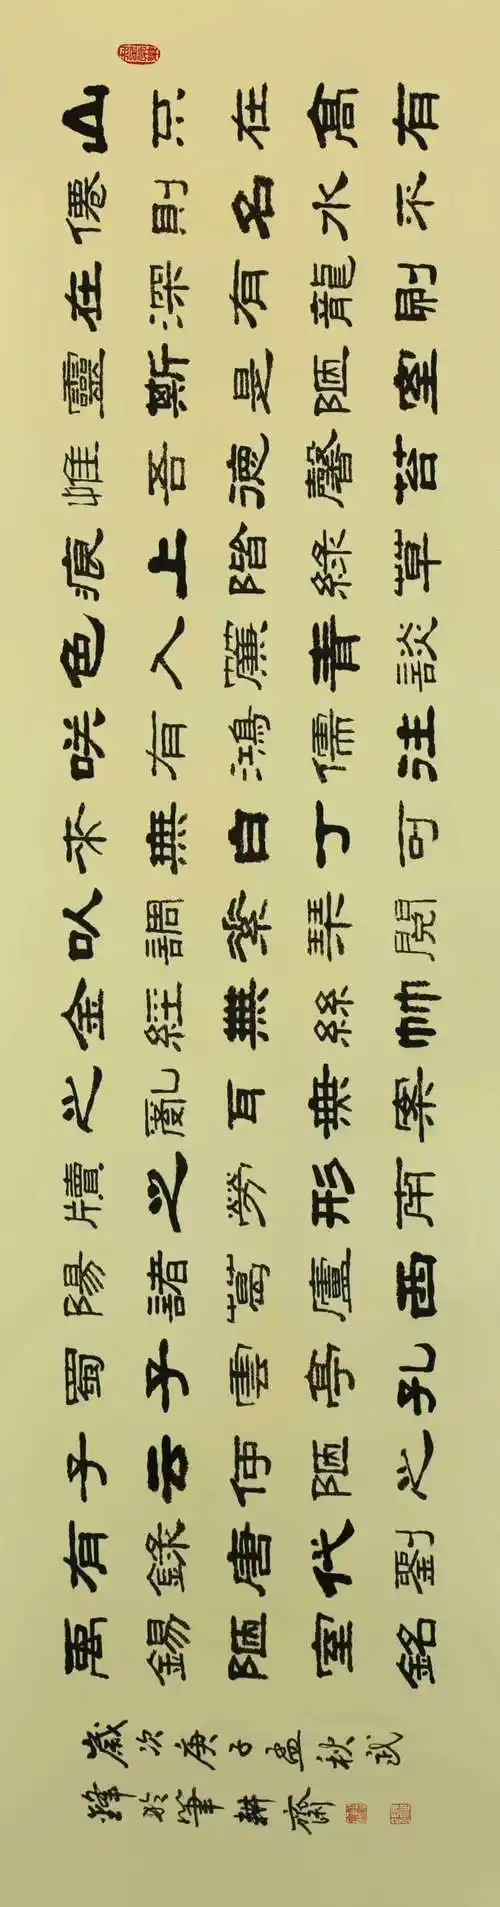 山不在高有
僊則名水不
在深有龍則
靈斯是陋室
惟吾德馨苔
痕上階綠草
色入簾青談
咲有鴻儒注
來無白丁可
以調素琴閱
金經無絲竹
之亂耳無案
牘之勞形南
陽諸葛廬西
蜀子雲亭孔
子云何陋之
有錄唐代劉
禹錫陋室銘
歲次庚子孟秋武
鋒於筆耕齋